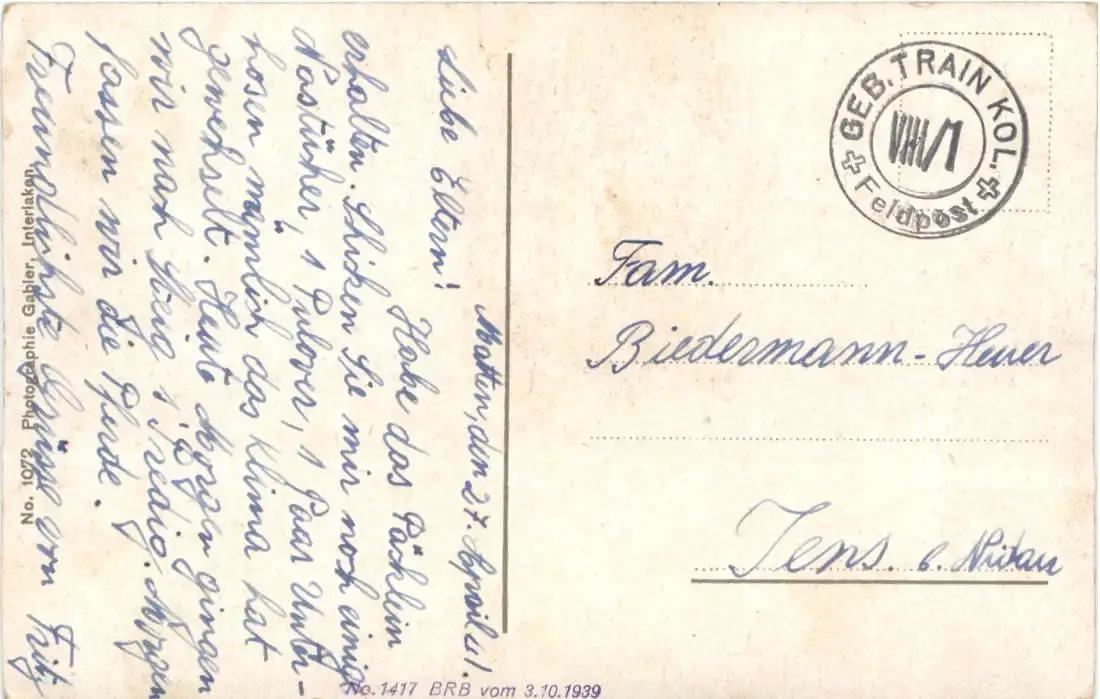 Matten, den 27. April 41.
Liebe Eltern!
Habe das Päcklein
erhalten. Schicken Sie mir noch einig
Nastücher, 1 Pulover, 1 Paar Unter-
hosen nämlich das Klima hat
gewechselt. Heute Morgen gingen
wir nach Zweig s Predig. Morgen
fassen wir die Pferde.
Freundlichste Grüsse vom Fritz
No. 1072 Photographie Gabler, Interlaken
GEB. TRAIN KOL.
VIII/1
Feldpost
Fam.
Biedermann-Heuer
Jens. b. Nidau
No.1417 BRB vom 3.10.1939